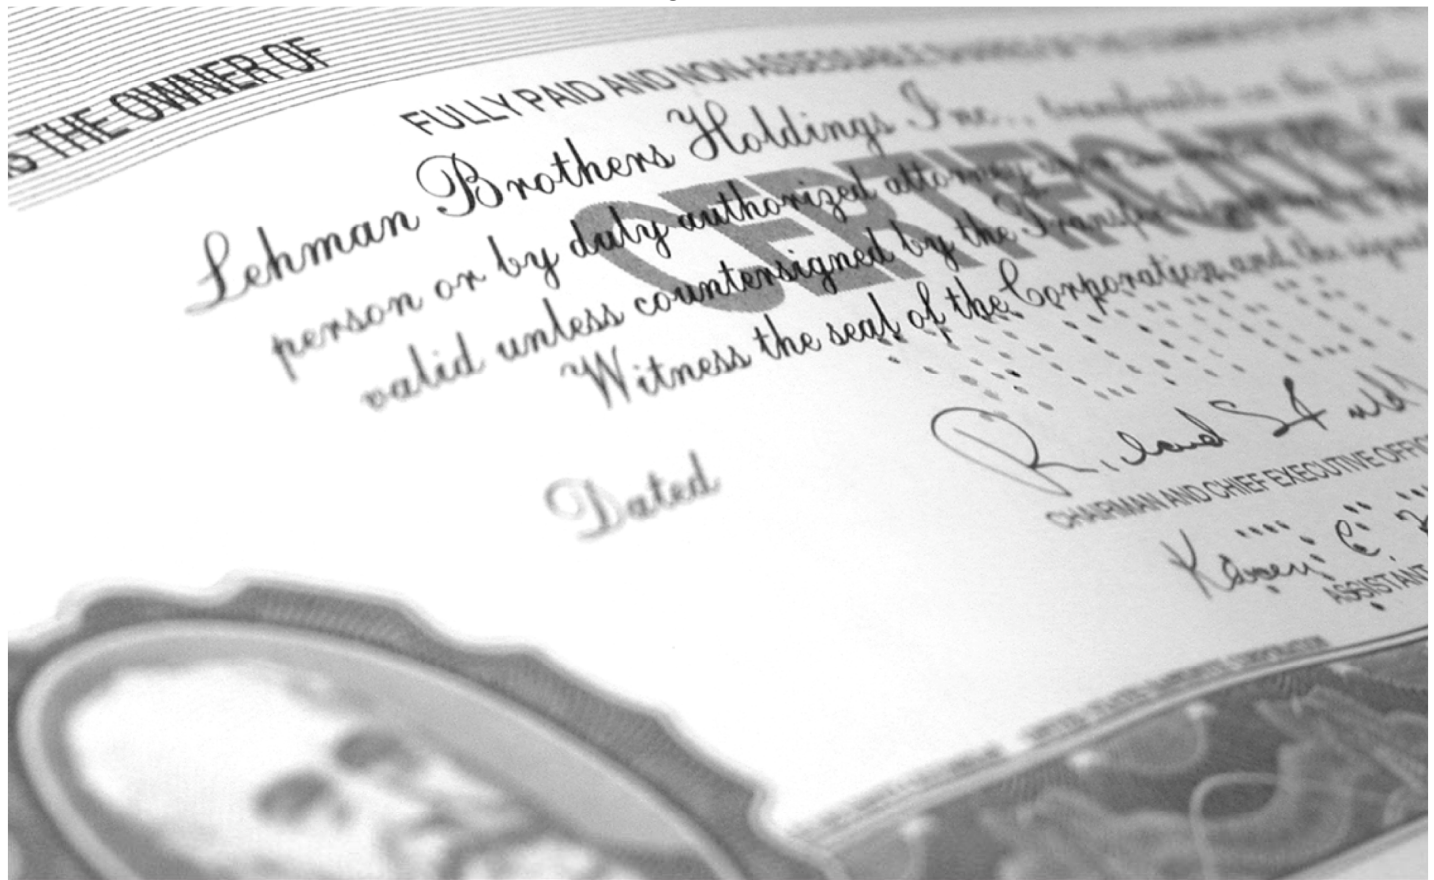 S THE OWNER OF
FULLY PAID AND NON-ASSESSABLE SHARES OF THE
Lehman Brothers Holdings Inc., transferable on the books
person or by duly authorized attorney upon
valid unless countersigned by the Transfer
Witness the seal of the Corporation and the
CERTIFICATE
Dated
Richard S Fuld
CHAIRMAN AND CHIEF EXECUTIVE OFFIC
Karen C.
ASSISTANT